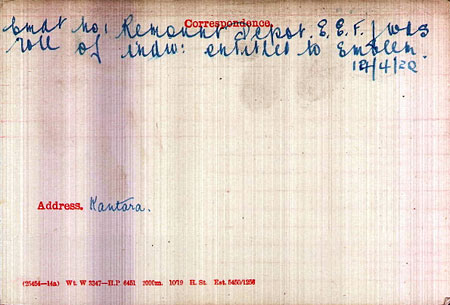 Correspondence.
Cmdt No: 1 Remount Depot. E.E.F. fwds
roll of indiv: entitled to Emblem.
19/4/20
Address. Kantara.
(25454—14a) Wt. W 3347—H.P. 6451 2000m. 10/19 H. St. Est. 5400/1256